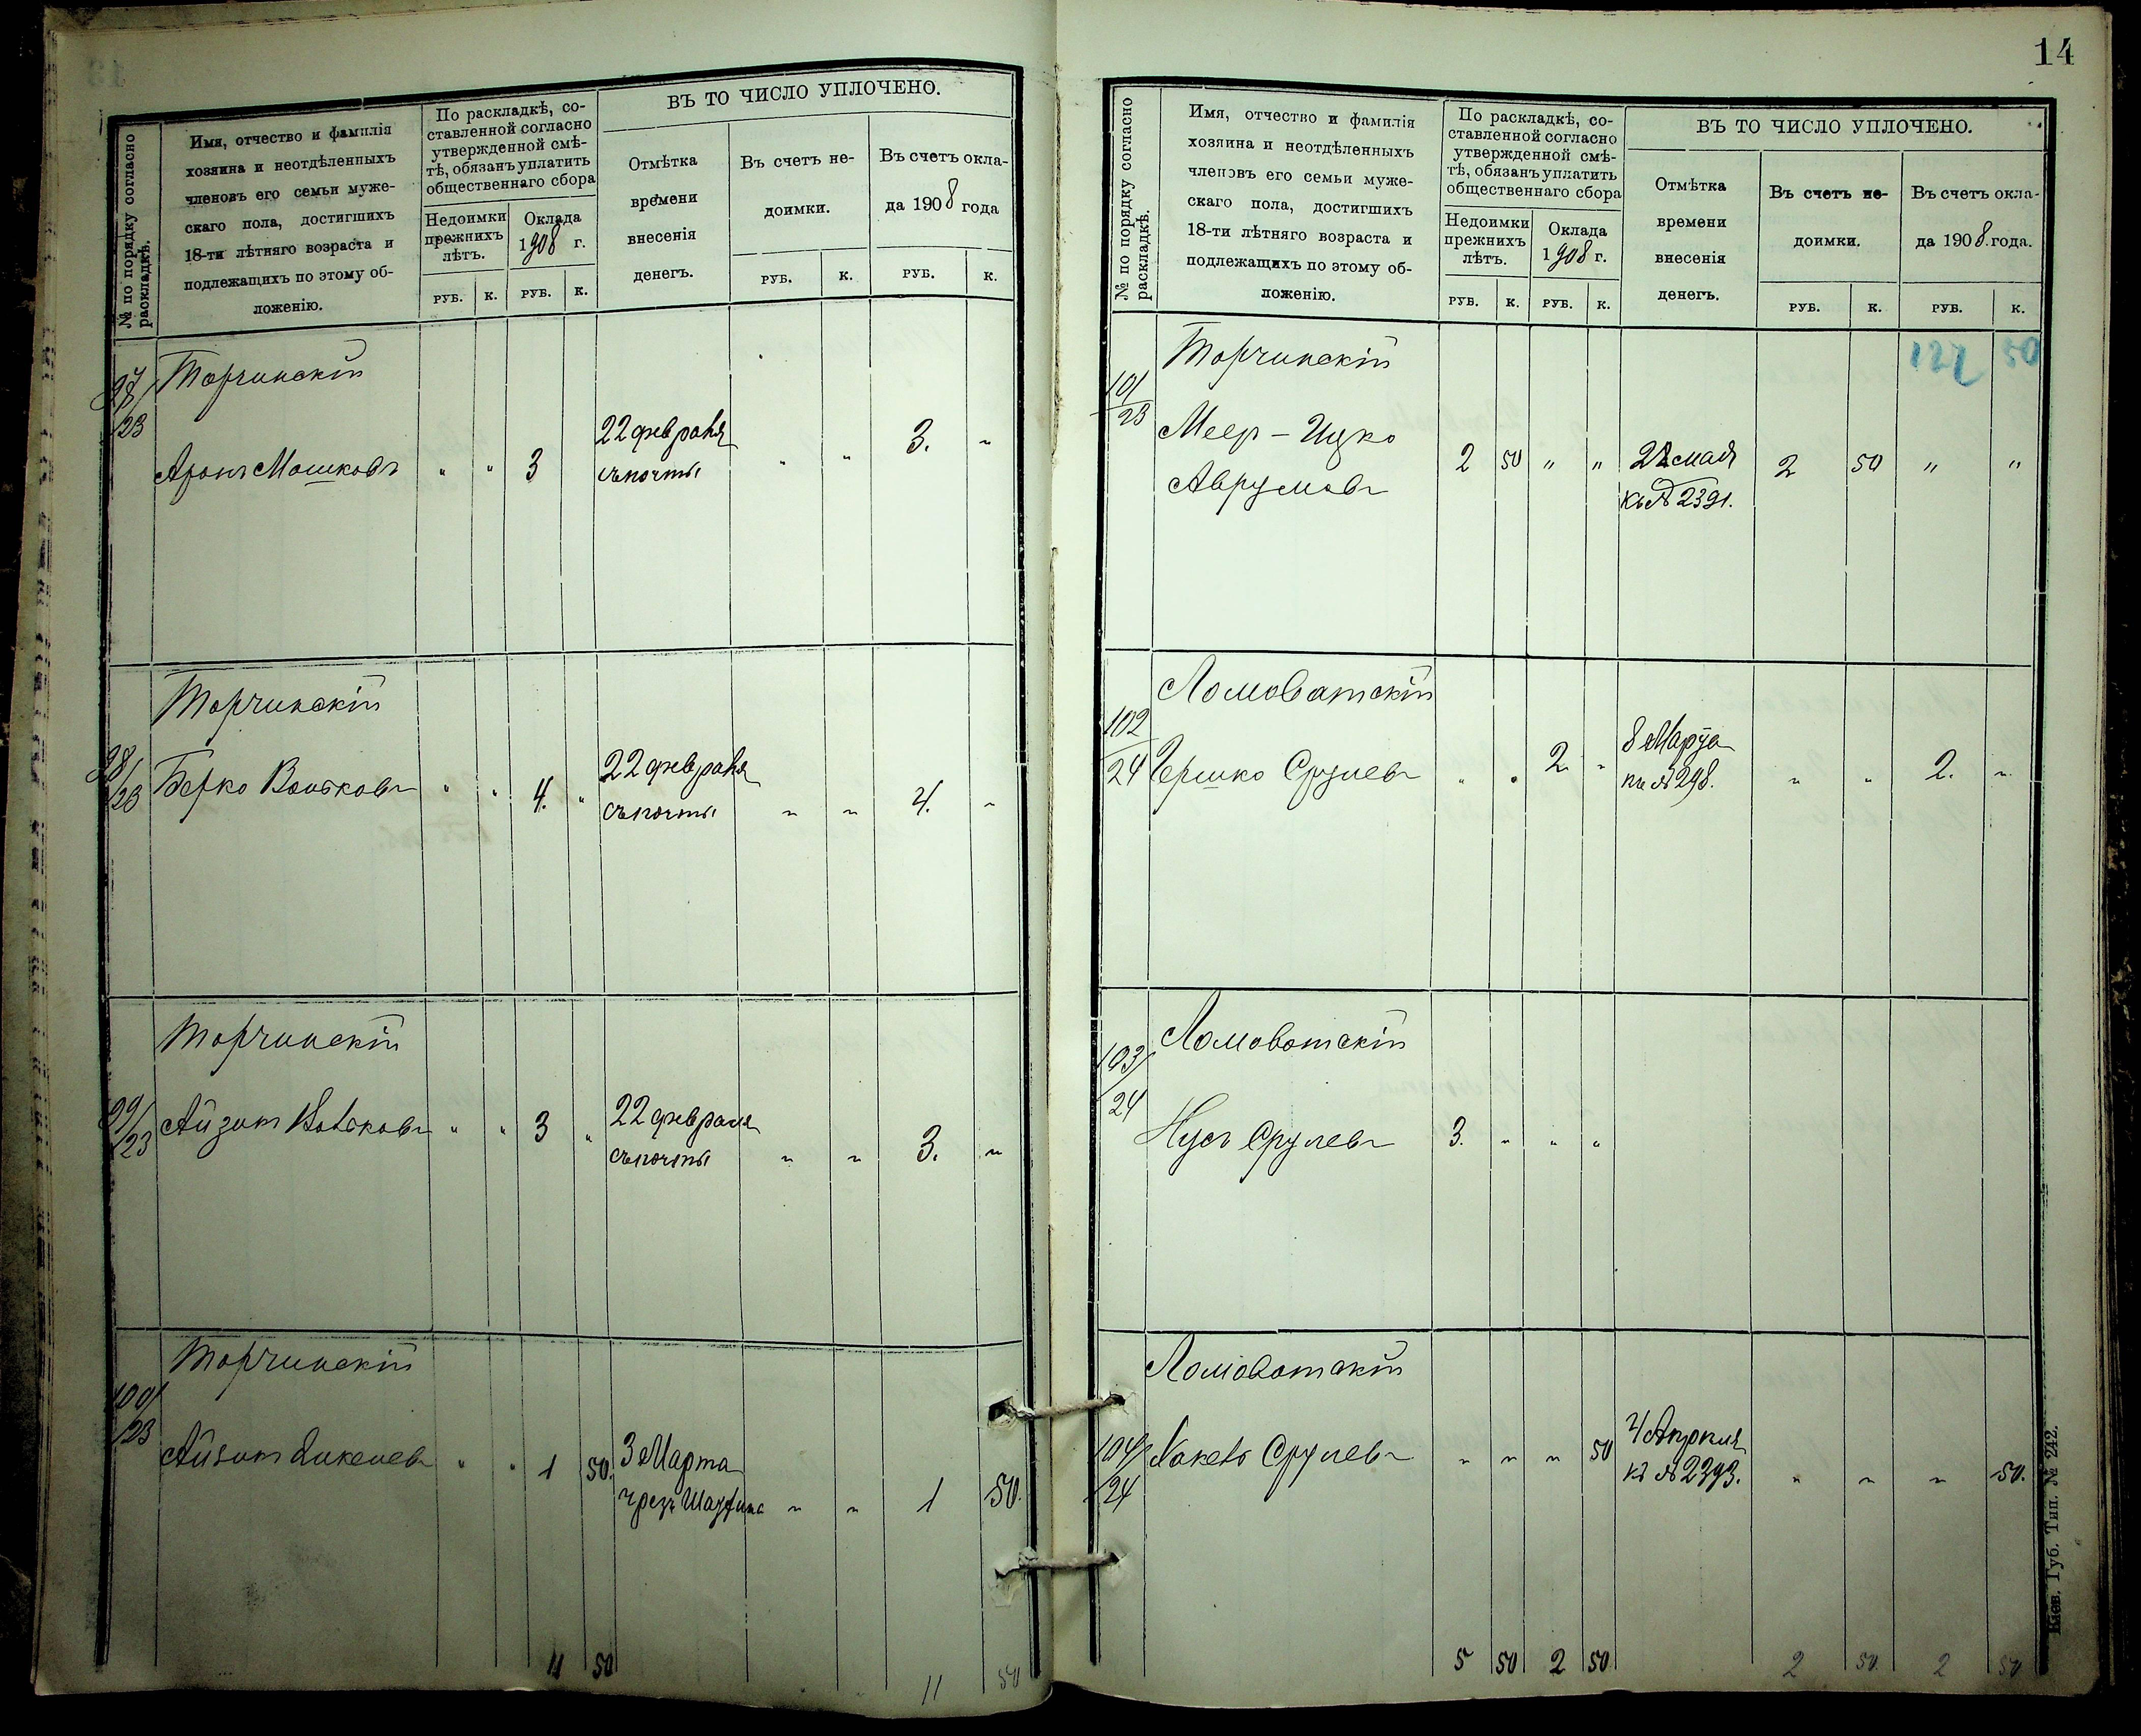 14
№ по порядку согласно
раскладкѣ.
Имя, отчество и фамилія
хозяина и неотдѣленныхъ
членовъ его семьи муже-
скаго пола, достигшихъ
18-ти лѣтняго возраста и
подлежащихъ по этому об-
ложенію.
По раскладкѣ, со-
ставленной согласно
утвержденной смѣ-
тѣ, обязанъ уплатить
общественнаго сбора
Недоимки
прежнихъ
лѣтъ.
Оклада
1908 г.
РУБ. К. РУБ. К.
ВЪ ТО ЧИСЛО УПЛОЧЕНО.
Отмѣтка
времени
внесенія
денегъ.
Въ счетъ не-
доимки.
Въ счетъ окла-
да 1908 года
РУБ. К. РУБ. К.
97/23
Торчинскій
Аронъ Мошковъ " " 3
22 февраля
съ почты
" " 3. "
98/23
Торчинскій
Берко Вольковъ " " 4. "
22 февраля
съ почты
" " 4. "
99/23
Торчинскій
Айзикъ Вольковъ " " 3 "
22 февраля
съ почты
" " 3. "
100/23
Торчинскій
Айзикъ " " 1 50.
3 Марта
чрезъ
" " 1 50.
11 50
11 50
№ по порядку согласно
раскладкѣ.
Имя, отчество и фамилія
хозяина и неотдѣленныхъ
членовъ его семьи муже-
скаго пола, достигшихъ
18-ти лѣтняго возраста и
подлежащихъ по этому об-
ложенію.
По раскладкѣ, со-
ставленной согласно
утвержденной смѣ-
тѣ, обязанъ уплатить
общественнаго сбора
Недоимки
прежнихъ
лѣтъ.
Оклада
1908 г.
РУБ. К. РУБ. К.
ВЪ ТО ЧИСЛО УПЛОЧЕНО.
Отмѣтка
времени
внесенія
денегъ.
Въ счетъ не-
доимки.
Въ счетъ окла-
да 1908. года.
РУБ. К. РУБ. К.
127 50
101/23
Торчинскій
Меер-Ицко
Аврумовъ
2 50 " "
мая
къ № 2391.
2 50 " "
102/24
Ломоватскій
Гершко Срулевъ " " 2 "
8 Марта
къ № 298.
" " 2. "
103/24
Ломоватскій
Нусъ Срулевъ 3. " " "
104/24
Ломоватскій
Срулевъ " " " 50
4 Апрѣля
къ № 2393.
" " " 50.
5 50 2 50
2 50. 2 50
Кіев. Губ. Тип. № 242.